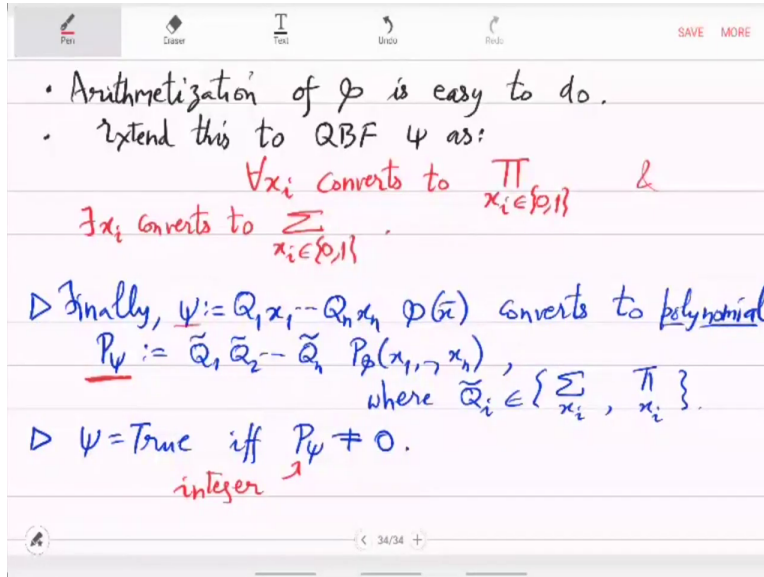 Pen Eraser Text Undo Redo SAVE MORE
• Arithmetization of φ is easy to do.
• Extend this to QBF ψ as:
∀xᵢ converts to ∏_{xᵢ∈{0,1}} &
∃xᵢ converts to ∑_{xᵢ∈{0,1}} .
▷ Finally, ψ := Q₁x₁--Qₙxₙ φ(x̄) converts to polynomial
P_ψ := Q̃₁ Q̃₂-- Q̃ₙ P_φ(x₁,,xₙ) ,
where Q̃ᵢ ∈ { ∑_{xᵢ} , ∏_{xᵢ} }.
▷ ψ=True iff P_ψ ≠ 0.
integer
< 34/34 +